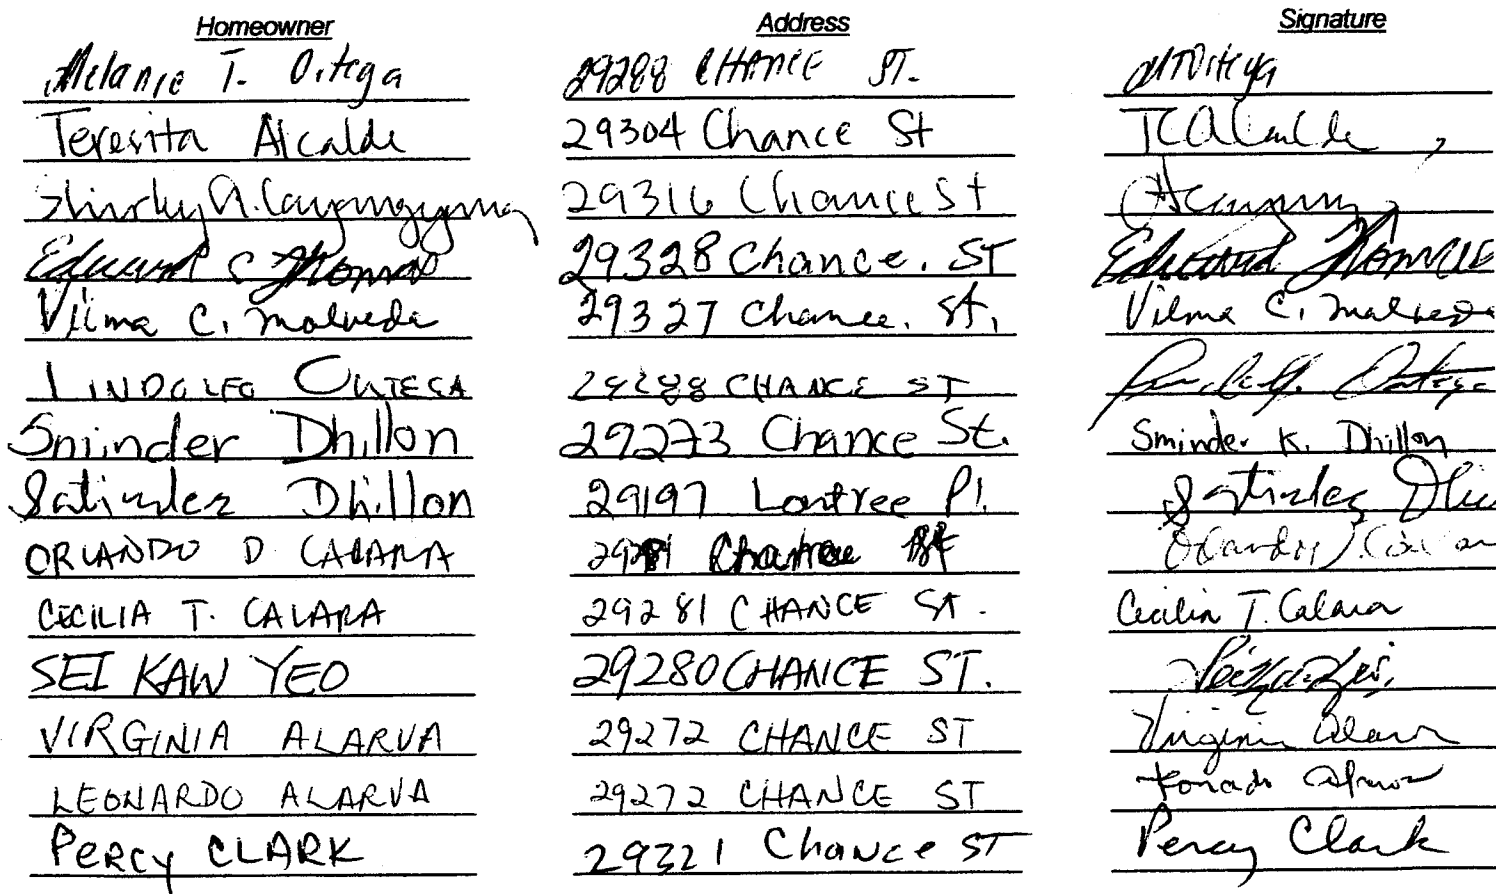 Homeowner Address Signature
Melanie T. Ortega 29288 CHANCE ST. MTOrtega
Teresita Alcalde 29304 Chance St TCAlcalde
Shirley A. 29316 Chance St
Edward C Thomas 29328 Chance. ST Edward Thomas
Vilma C. Malveda 29327 Chance. St. Vilma C. Malveda
LINDOLFO ORTEGA 29288 CHANCE ST Ortega
Sminder Dhillon 29273 Chance St. Sminder K. Dhillon
Satinder Dhillon 29197 Lontree Pl. Satinder
ORLANDO D CALARA 29281 Chance
CECILIA T. CALARA 29281 CHANCE ST. Cecilia T. Calara
SEI KAW YEO 29280 CHANCE ST.
VIRGINIA ALARVA 29272 CHANCE ST Virginia
LEONARDO ALARVA 29272 CHANCE ST
PERCY CLARK 29321 Chance ST Percy Clark